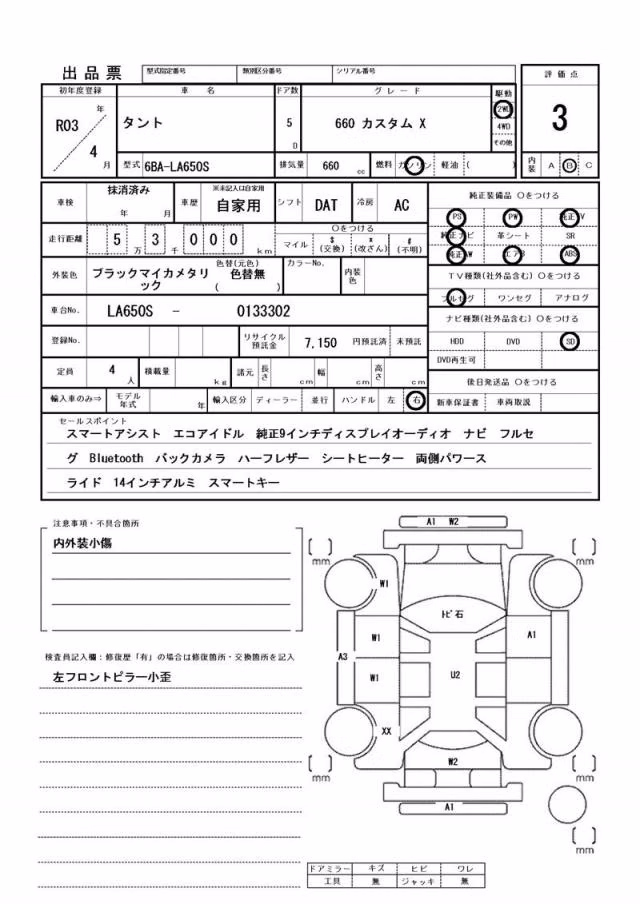 出品票 型式指定番号 類別区分番号 シリアル番号
評価点
3
初年度登録 車名 ドア数 グレード 駆動
R03 年 4 月
タント 5 D 660 カスタム X
2WD
4WD
その他
型式 6BA-LA650S 排気量 660 cc 燃料 ガソリン 軽油 ( )
内装 A B C
車検 抹消済み 年 月 車歴 ※未記入は自家用 自家用 シフト DAT 冷房 AC
走行距離 5 万 3 千 0 0 0 km
○をつける
マイル $ (交換) * (改ざん) # (不明)
外装色 ブラックマイカメタリック 色替(元色) 色替無 ( ) カラーNo. 内装色
車台No. LA650S - 0133302
登録No. リサイクル預託金 7,150 円預託済 未預託
定員 4 人 積載量 kg 諸元 長さ cm 幅 cm 高さ cm
輸入車のみ⇒ モデル年式 年 輸入区分 ディーラー 並行 ハンドル 左 右
純正装備品 ○をつける
PS PW 純正TV
純正ナビ 革シート SR
純正AW エアB ABS
TV種類(社外品含む) ○をつける
フルセグ ワンセグ アナログ
ナビ種類(社外品含む) ○をつける
HDD DVD SD
DVD再生可
後日発送品 ○をつける
新車保証書 車両取説
セールスポイント
スマートアシスト エコアイドル 純正9インチディスプレイオーディオ ナビ フルセ
グ Bluetooth バックカメラ ハーフレザー シートヒーター 両側パワース
ライド 14インチアルミ スマートキー
注意事項・不具合箇所
内外装小傷
検査員記入欄：修復歴「有」の場合は修復箇所・交換箇所を記入
左フロントピラー小歪
A1 W2
[ ] mm
[ ] mm
W1
トビ石
W1
A1
A3
W1
U2
XX
W2
[ ] mm
[ ] mm
A1
[ ] mm
ドアミラー キズ ヒビ ワレ
工具 無 ジャッキ 無